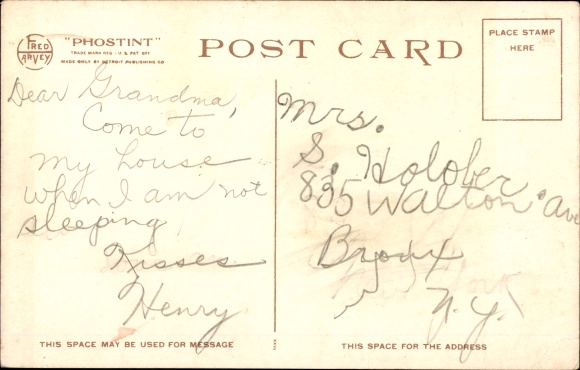 FRED HARVEY
"PHOSTINT"
TRADE MARK REG. U.S. PAT. OFF
MADE ONLY BY DETROIT PUBLISHING CO
POST CARD
PLACE STAMP
HERE
Dear Grandma,
Come to
my house
when I am not
sleeping
Kisses
Henry
Mrs.
S. Holober
835 Walton Ave
Bronx
N.Y.
THIS SPACE MAY BE USED FOR MESSAGE
THIS SPACE FOR THE ADDRESS